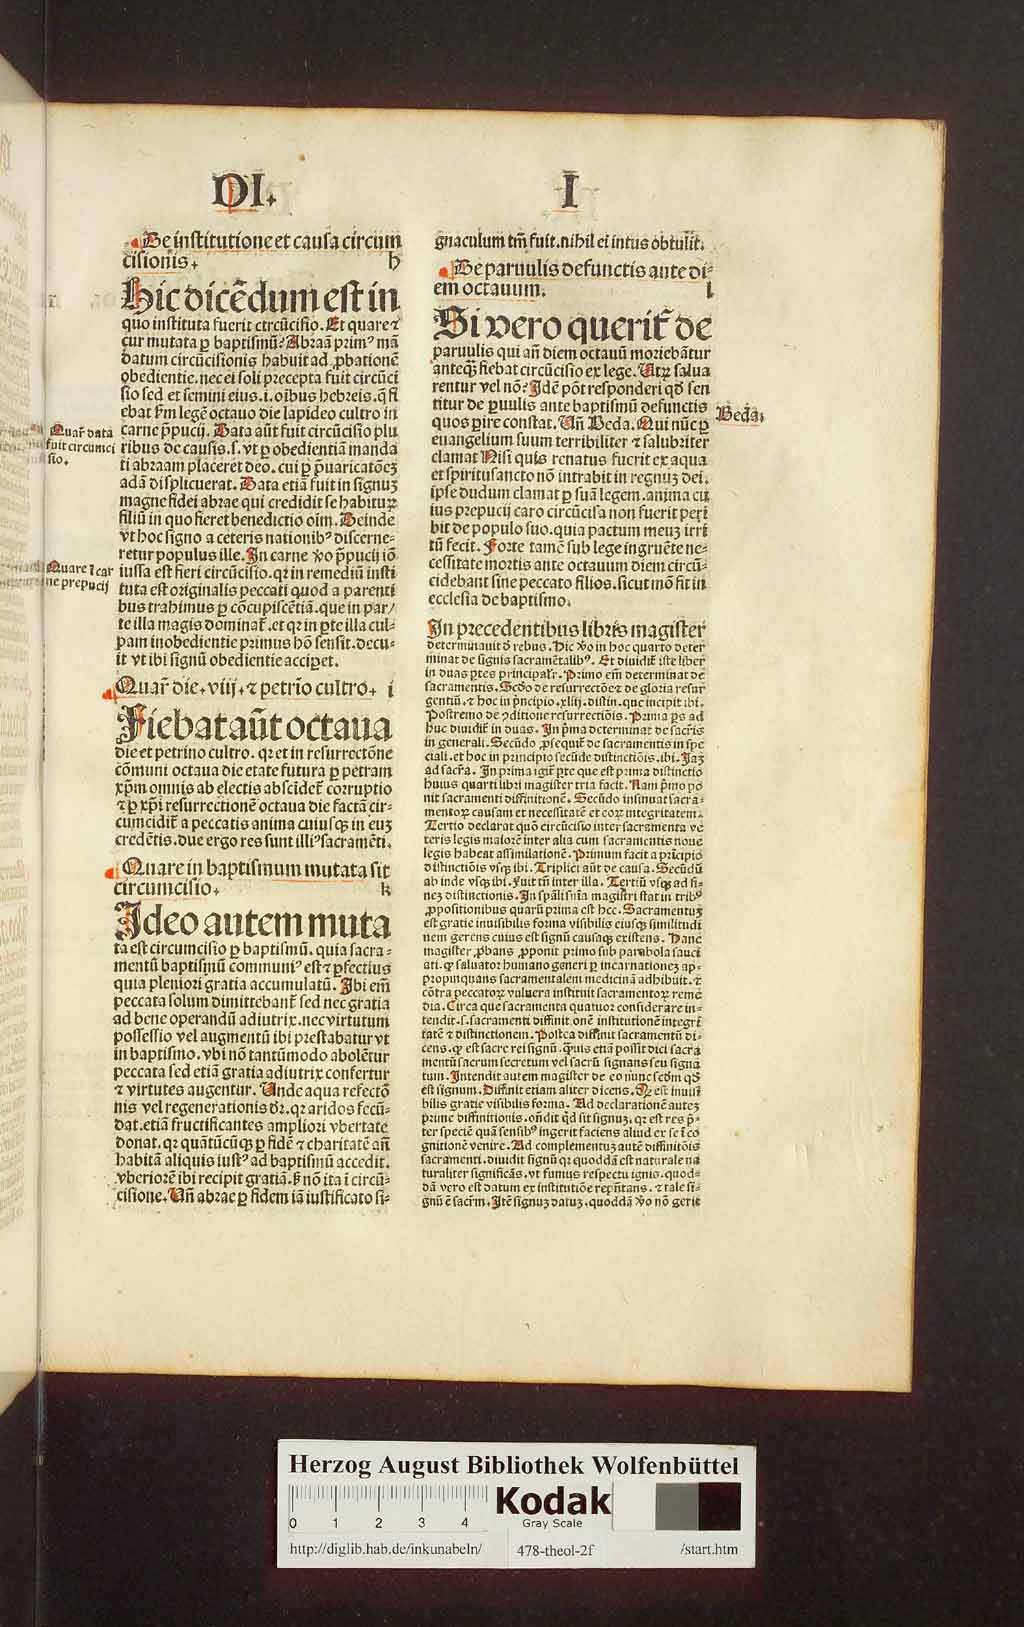 DI.
I
De institutione et causa circum
cisionis. h
Hic dicēdum est in
quo instituta fuerit circūcisio. Et quare ⁊
cur mutata ꝑ baptismū? Abraā prim⁹ mā
datum circūcisionis habuit ad ꝓbationē
obedientie. nec ei soli precepta fuit circūci
sio sed et semini eius. i. oībus hebreis. q̄ fi
ebat ẜm legē octauo die lapideo cultro in
carne p̄pucij. Data aūt fuit circūcisio plu
ribus de causis. s. vt ꝑ obedientiā manda
ti abraam placeret deo. cui ꝑ p̄uaricatōeꝫ
adā displicuerat. Data etiā fuit in signuꝫ
magne fidei abrae qui credidit se habituꝝ
filiū in quo fieret benedictio oīm. Deinde
vt hoc signo a ceteris nationib⁹ discerne-
retur populus ille. In carne v̊o p̄pucij iō
iussa est fieri circūcisio. qꝛ in remediū insti
tuta est originalis peccati quod a parenti
bus trahimus ꝑ cōcupiscētiā. que in par/
te illa magis dominat̄. et qꝛ in ꝑte illa cul-
pam inobedientie primus hō sensit. decu-
it vt ibi signū obedientie acciꝑet.
Quar̄ die. viij. ⁊ petrīo cultro. i
Fiebat aūt octaua
die et petrino cultro. qꝛ et in resurrectōne
cōmuni octaua die etate futura ꝑ petram
xp̄m omnis ab electis abscidet̄ corruptio
⁊ ꝑ xp̄i resurrectionē octaua die factā cir-
cumcidit̄ a peccatis anima cuiusqꝫ in euꝫ
credētis. due ergo res sunt illi⁹ sacramēti.
Quare in baptismum mutata sit
circumcisio. k
Ideo autem muta
ta est circumcisio ꝑ baptismū. quia sacra-
mentū baptismū communi⁹ est ⁊ ꝑfectius
quia pleniori gratia accumulatū. Ibi em̄
peccata solum dimittebant̄ sed nec gratia
ad bene operandū adiutrix. nec virtutum
possessio vel augmentū ibi prestabatur vt
in baptismo. vbi nō tantūmodo abolētur
peccata sed etiā gratia adiutrix confertur
⁊ virtutes augentur. Unde aqua refectō
nis vel regenerationis dr̄. qꝛ aridos fecū-
dat. etiā fructificantes ampliori vbertate
donat. qꝛ quātūcūqꝫ ꝑ fidē ⁊ charitatē añ
habitā aliquis iust⁹ ad baptismū accedit.
vberiorē ibi recipit gratiā. ẜ nō ita ī circū-
cisione. Uñ abrae ꝑ fidem iā iustificato si-
Quar̄ data
fuit circumci
sio.
Quare ī car
ne prepucij
gnaculum tm̄ fuit. nihil ei intus obtulit.
De paruulis defunctis ante di-
em octauum. l
Si vero querit̄ de
paruulis qui añ diem octauū moriebātur
anteqꝫ fiebat circūcisio ex lege. Utꝝ salua
rentur vel nō? Idē pōt responderi qd̄ sen
titur de ꝑuulis ante baptismū defunctis
quos ꝑire constat. Uñ Beda. Qui nūc ꝑ
euangelium suum terribiliter ⁊ salubriter
clamat Nisi quis renatus fuerit ex aqua
et spiritusancto nō intrabit in regnuꝫ dei.
ipse dudum clamat ꝑ suā legem. anima cu
ius prepucij caro circūcisa non fuerit peri
bit de populo suo. quia pactum meuꝫ irri
tū fecit. Forte tamē sub lege ingruēte ne-
cessitate mortis ante octauum diem circū-
cidebant sine peccato filios. sicut mō fit in
ecclesia de baptismo.
In precedentibus libris magister
determinauit d̄ rebus. Hic v̊o in hoc quarto deter
minat de signis sacramētalib⁹. Et diuidit̄ iste liber
in duas ꝑtes principalr̄. Primo em̄ determinat de
sacramentis. Scd̄o de resurrectōe ⁊ de gloria resur
gentiū. ⁊ hoc in p̄ncipio. xliij. distin. que incipit ibi.
Postremo de ꝯditione resurrectiōis. Prima ꝑs ad
huc diuidit̄ in duas. In p̄ma determinat de sacr̄is
in generali. Secūdo ꝓsequit̄ de sacramentis in spe
ciali. et hoc in principio secūde distinctiōis. ibi. Iaꝫ
ad sacr̄a. In prima igit̄ ꝑte que est prima distinctio
huius quarti libri magister tria facit. Nam p̄mo po
nit sacramenti diffinitionē. Secūdo insinuat sacra-
mentoꝝ causam et necessitatē et eoꝝ integritatem.
Tertio declarat quō circūcisio inter sacramenta ve
teris legis maiorē inter alia cum sacramentis noue
legis habeat assimilationē. Primum facit a principio
distinctiōis vsqꝫ ibi. Triplici aūt de causa. Secūdū
ab inde vsqꝫ ibi. Fuit tn̄ inter illa. Tertiū vsqꝫ ad fi-
neꝫ distinctionis. In sp̄ali sn̄ia magistri stat in trib⁹
ꝓpositionibus quarū prima est hec. Sacramentuꝫ
est gratie inuisibilis forma visibilis eiusqꝫ similitudi
nem gerens cuius est signū causaqꝫ existens. Hanc
magister ꝓbans ꝓponit primo sub parabola sauci
ati. qꝙ saluator humano generi ꝑ incarnationeꝫ ap-
propinquans sacramentalem medicinā adhibuit. ⁊
cōtra peccatoꝝ vulnera instituit sacramentoꝝ reme
dia. Circa que sacramenta quatuor considerare in-
tendit. s. sacramenti diffinitionē institutionē integri
tatē ⁊ distinctionem. Postea diffinit sacramentū di-
cens. qꝙ est sacre rei signū. q̄uis etiā possit dici sacra
mentū sacrum secretum vel sacrū signans seu signa
tum. Intendit autem magister de eo nunc scd̄m qd̄
est signum. Diffinit etiam aliter dicens. Qꝙ est inuisi
bilis gratie visibilis forma. Ad declarationē auteꝫ
prime diffinitionis. on̄dit qd̄ sit signuꝫ. qꝛ est res p̄-
ter speciē quā sensib⁹ ingerit faciens aliud ex se ī co
gnitionē venire. Ad complementuꝫ autē diffinitōis
sacramenti. diuidit signū qꝛ quoddā est naturale na
turaliter significās. vt fumus respectu ignis. quod-
dā vero est datum ex institutiōe rep̄ntans. ⁊ tale si-
gnū ē sacr̄m. Itē signuꝫ datuꝫ. quoddā v̊o nō gerit
Beda.
Herzog August Bibliothek Wolfenbüttel
0 1 2 3 4
Kodak
Gray Scale
http://diglib.hab.de/inkunabeln/ 478-theol-2f /start.htm